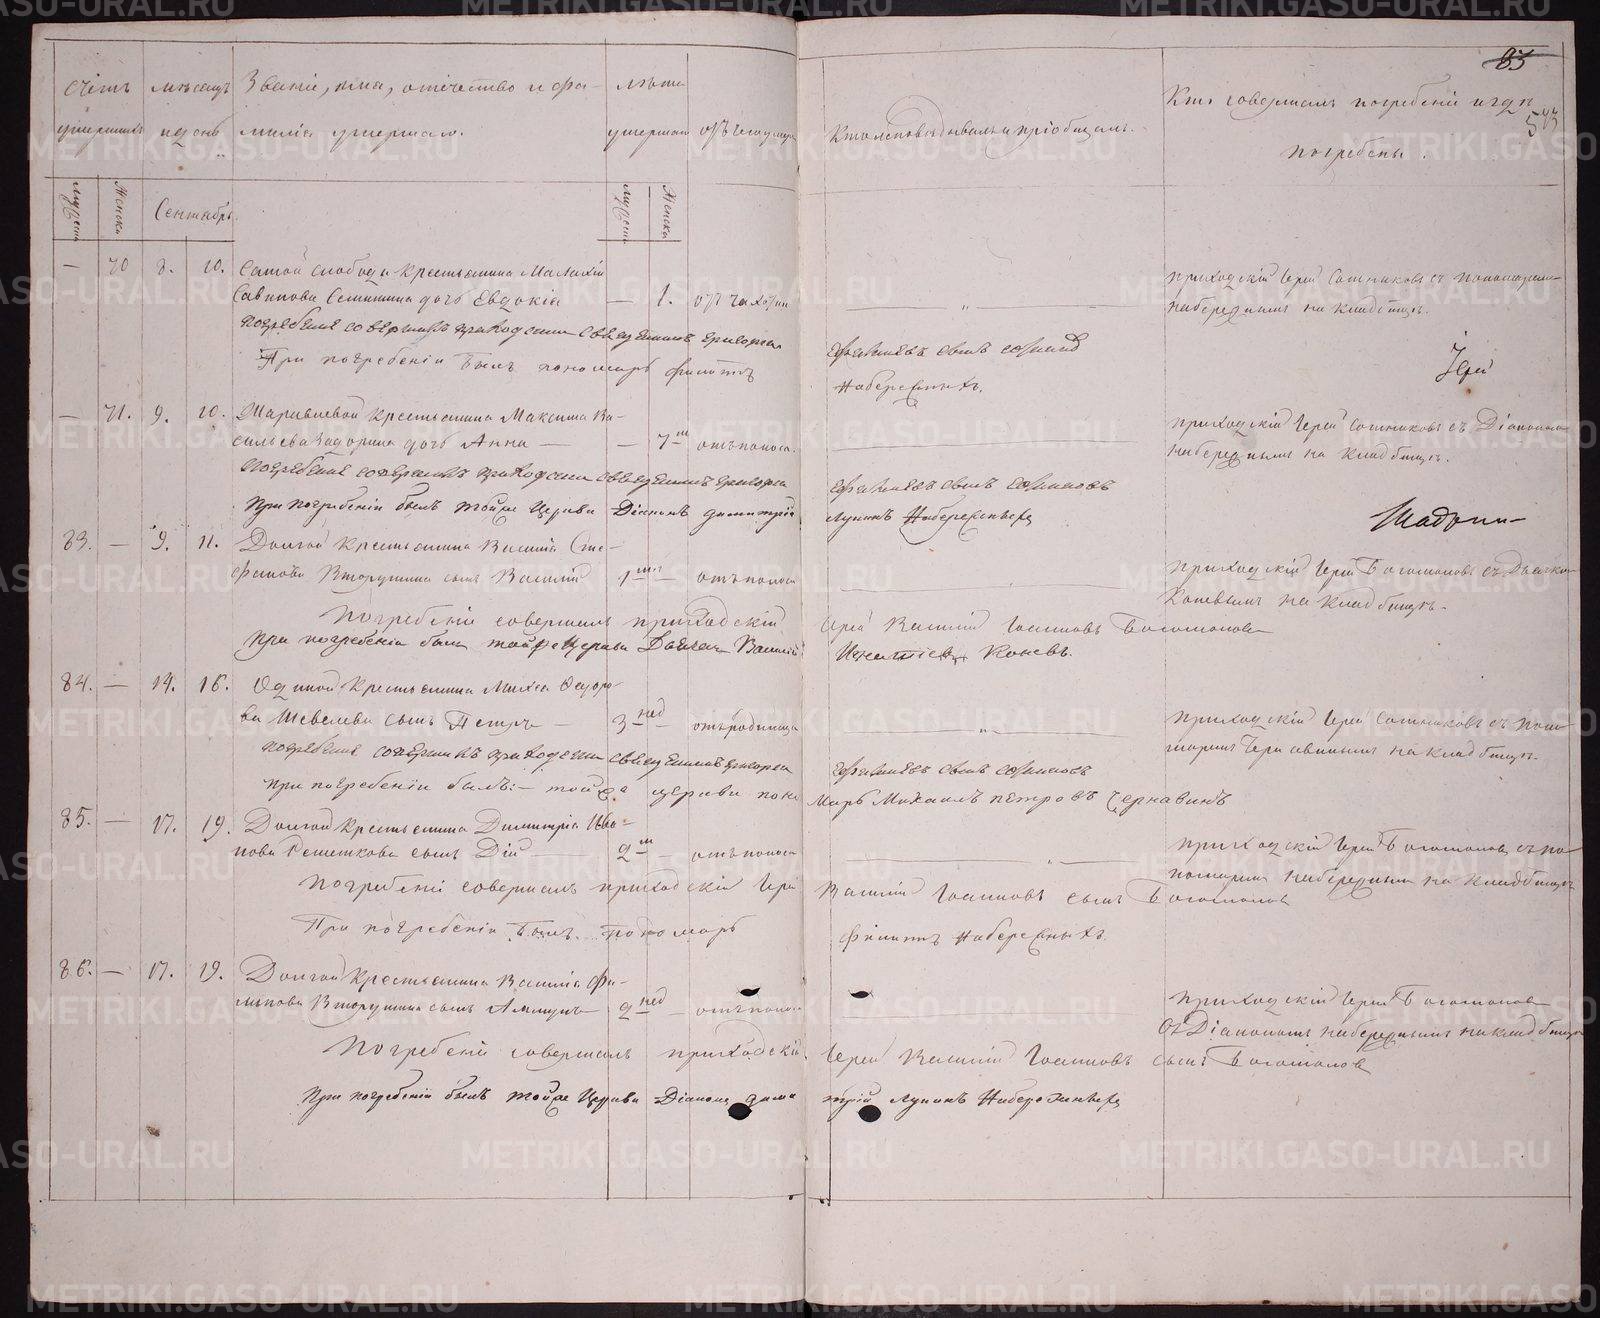 85
543
Счетъ умершихъ
Мѣсяцъ и день
Званіе, имя, отечество и фамилія умершаго.
Лѣта умершаго
Отъ чего умеръ
Кто исповѣдывалъ и пріобщалъ.
Кто совершалъ погребеніе и гдѣ погребены.
Мужеска
Женска
Сентябрь.
Мужеска
Женска
— 70 8. 10. Самой слободы крестьянина Малахіи
Савинова дочь Евдокія — 1. отъ
Погребеніе совершалъ приходскій священникъ
При погребеніи былъ пономарь Филиппъ
Набережныхъ.
Приходскій Іерей Сотниковъ съ пономаремъ
Набережнымъ на кладбищѣ.
Іерей
— 71. 9. 10. крестьянина Максима Ва-
сильева Задорина дочь Анна — — 7 м отъ поноса.
Погребеніе совершалъ приходскій священникъ
сынъ Сотниковъ
При погребеніи былъ той же Церкви Діаконъ Димитрій
Лукинъ Набережныхъ
Приходскій Іерей Сотниковъ съ Діакономъ
Набережнымъ на кладбищѣ.
Шадрин
83. — 9. 11. Долгой крестьянина Василія Сте-
фанова Вторушина сынъ Василій 1 отъ поноса
Погребеніе совершалъ приходскій
Іерей Василій Іоанновъ Богомоловъ
При погребеніи былъ той же Церкви Дьячекъ Василій
Игнатіевъ Коневъ.
Приходскій Іерей Богомоловъ съ Дьячкомъ
Коневымъ на кладбищѣ.
84. — 14. 16. Одиной крестьянина Михея Федоро-
ва Шевелева сынъ Петръ — 3 нед отъ родимца
Погребеніе совершалъ приходскій священникъ
сынъ Сотниковъ
при погребеніи былъ: — той же церкви поно
марь Михаилъ Петровъ Чернавинъ
Приходскій Іерей Сотниковъ съ Поно-
маремъ Чернавинымъ на кладбищѣ.
85. — 17. 19. Долгой крестьянина Димитрія Ива-
нова Решеткова сынъ Дій — 2 м — отъ поноса
Погребеніе совершалъ приходскій Іерей
Василій Іоанновъ сынъ Богомоловъ
При погребеніи былъ Пономарь
Филиппъ Набережныхъ.
Приходскій Іерей Богомоловъ съ По-
номаремъ Набережнымъ на кладбищѣ
86. — 17. 19. Долгой крестьянина Василія Фи-
липова Вторушина сынъ 2 нед — отъ поноса
Погребеніе совершалъ приходскій
Іерей Василій Іоанновъ сынъ Богомоловъ
При погребеніи былъ той же Церкви Діаконъ Дими
трій Лукинъ Набережныхъ
Приходскій Іерей Богомоловъ
съ Діакономъ Набережнымъ на кладбищѣ
METRIKI.GASO-URAL.RU